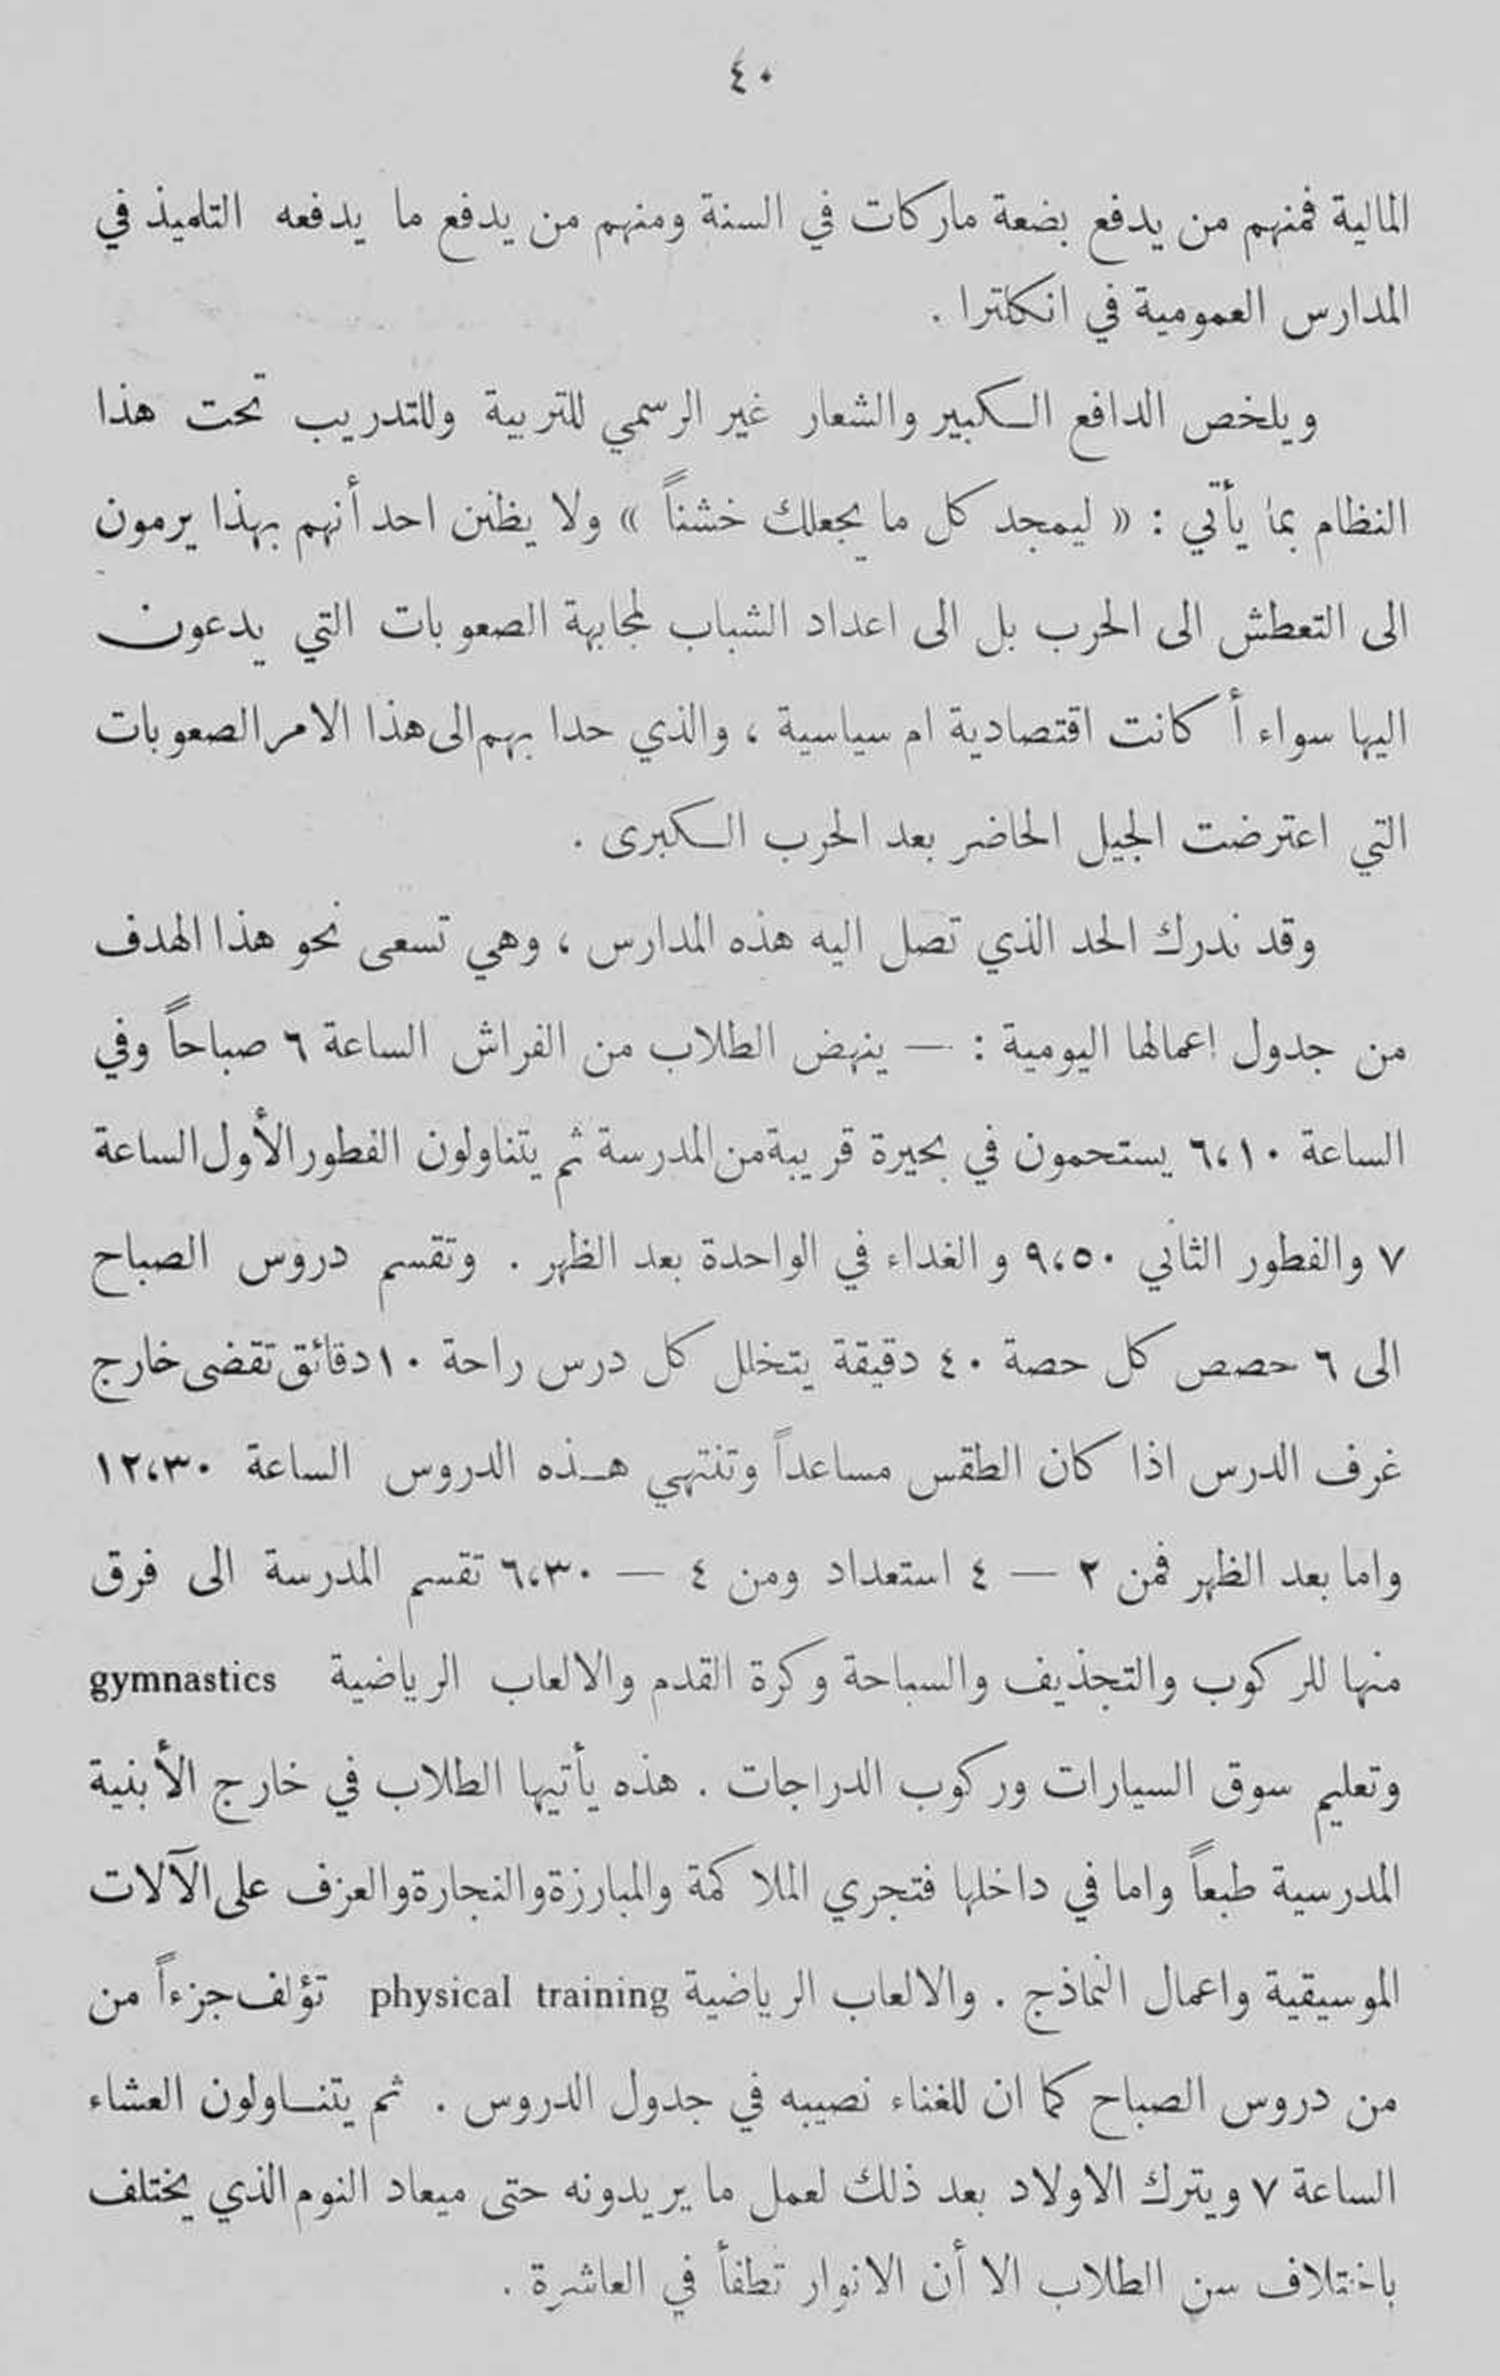 ٤٠
المالية فمنهم من يدفع بضعة ماركات في السنة ومنهم من يدفع ما يدفعه التلميذ في
المدارس العمومية في انكلترا .
ويلخص الدافع الكبير والشعار غير الرسمي للتربية وللتدريب تحت هذا
النظام بما يأتي : « ليمجد كل ما يجعلك خشناً » ولا يظنن احد أنهم بهذا يرمون
الى التعطش الى الحرب بل الى اعداد الشباب لمجابهة الصعوبات التي يدعون
اليها سواء أكانت اقتصادية ام سياسية ، والذي حدا بهم الى هذا الامر الصعوبات
التي اعترضت الجيل الحاضر بعد الحرب الكبرى .
وقد ندرك الحد الذي تصل اليه هذه المدارس ، وهي تسعى نحو هذا الهدف
من جدول اعمالها اليومية : — ينهض الطلاب من الفراش الساعة ٦ صباحاً وفي
الساعة ٦،١٠ يستحمون في بحيرة قريبة من المدرسة ثم يتناولون الفطور الأول الساعة
٧ والفطور الثاني ٩،٥٠ والغداء في الواحدة بعد الظهر . وتقسم دروس الصباح
الى ٦ حصص كل حصة ٤٠ دقيقة يتخلل كل درس راحة ١٠ دقائق تقضى خارج
غرف الدرس اذا كان الطقس مساعداً وتنتهي هذه الدروس الساعة ١٢،٣٠
واما بعد الظهر فمن ٢ — ٤ استعداد ومن ٤ — ٦،٣٠ تقسم المدرسة الى فرق
منها للركوب والتجذيف والسباحة وكرة القدم والالعاب الرياضية gymnastics
وتعليم سوق السيارات وركوب الدراجات . هذه يأتيها الطلاب في خارج الأبنية
المدرسية طبعاً واما في داخلها فتجري الملاكمة والمبارزة والنجارة والعزف على الآلات
الموسيقية واعمال النماذج . والالعاب الرياضية physical training تؤلف جزءاً من
من دروس الصباح كما ان للغناء نصيبه في جدول الدروس . ثم يتناولون العشاء
الساعة ٧ ويترك الاولاد بعد ذلك لعمل ما يريدونه حتى ميعاد النوم الذي يختلف
باختلاف سن الطلاب الا أن الانوار تطفأ في العاشرة .